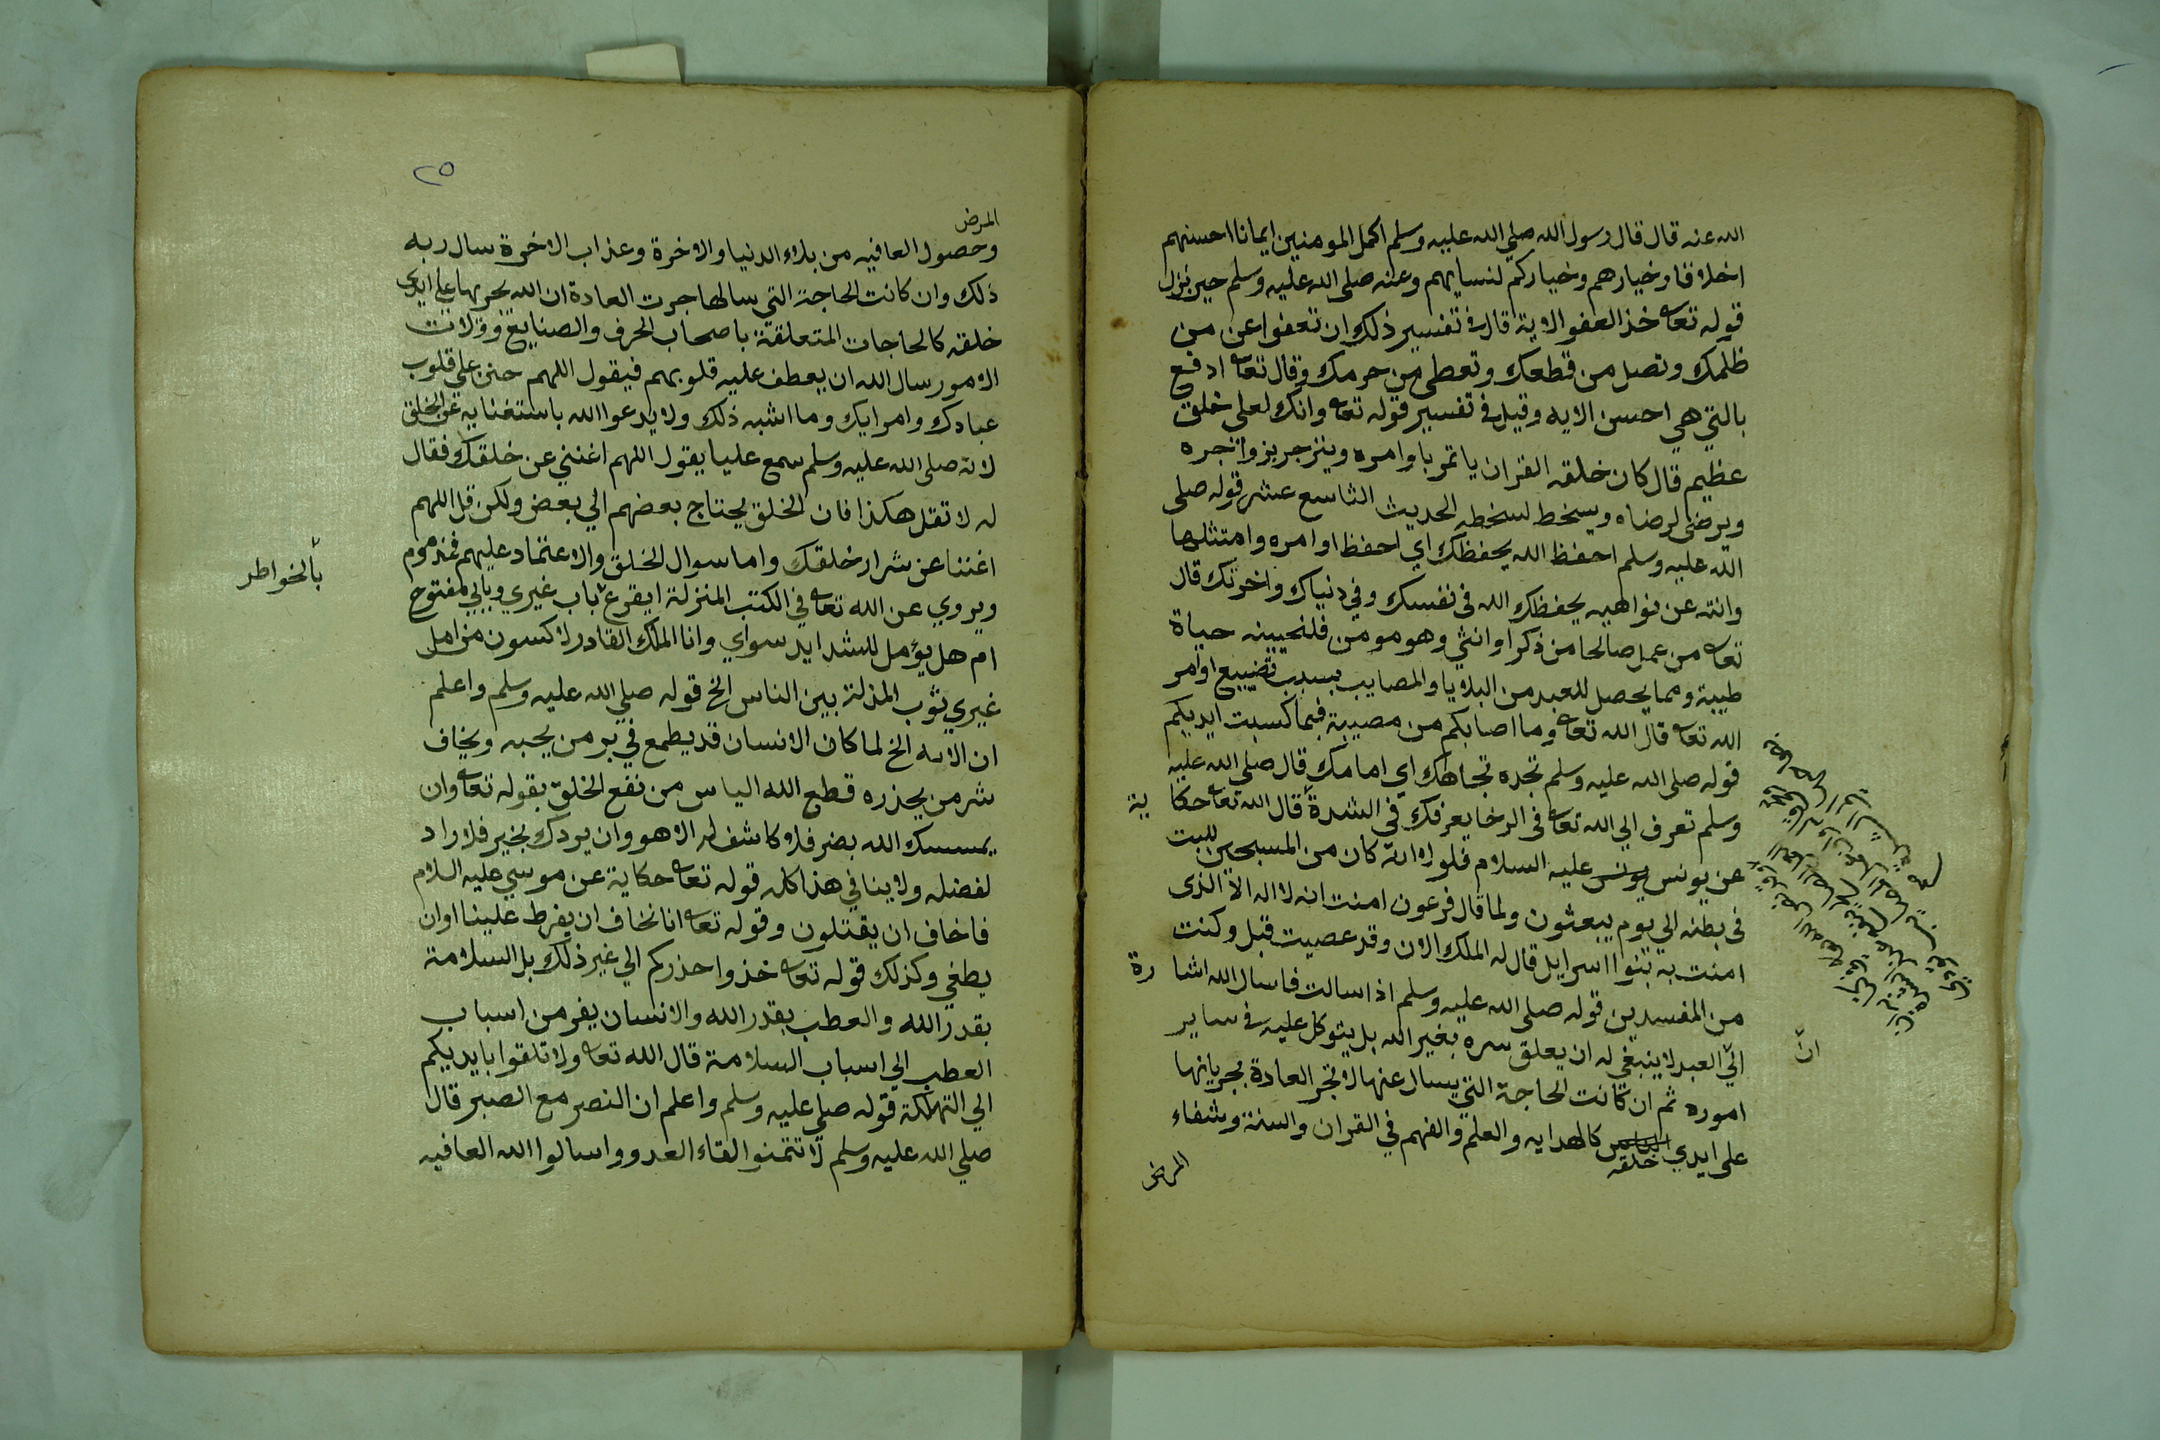 الله عنه قال قال رسول الله صلي الله عليه وسلم اكمل المومنين ايمانا احسنهم
اخلاقا وخيارهم وخياركم لنسايهم وعنه صلى الله عليه وسلم حين نزل
قوله تعا خذ العفو الاية قال في تفسير ذلك ان تعفوا عن من
ظلمك وتصل من قطعك وتعطي من حرمك وقال تعا ادفع
بالتي هي احسن الايه وقيل في تفسير قوله تعا وانك لعلى خلق
عظيم قال كان خلقه القران ياتمر باوامره وينزجر بزواجره
ويرضى لرضاه ويسخط لسخطه الحديث التاسع عشر قوله صلى
الله عليه وسلم احفظ الله يحفظك اي احفظ اوامره وامتثلها
وانته عن نواهيه يحفظك الله فى نفسك وفي دنياك واخرتك قال
تعا من عمل صالحا من ذكر او انثي وهو مومن فلنحيينه حياة
طيبة ومما يحصل للعبد من البلايا والمصايب بسبب تضييع اوامر
الله تعا قال الله تعا وما اصابكم من مصيبة فبما كسبت ايديكم
قوله صلى الله عليه وسلم تجده تجاهك اي امامك قال صلى الله عليه
وسلم تعرف الي الله تعا فى الرخا يعرفك في الشدة قال الله تعا حكا ية
عن يونس يونس عليه السلام فلولا انه كان من المسبحين للبث
فى بطنه الي يوم يبعثون ولما قال فرعون امنت انه لا اله الا الذى
امنت به بنوا اسرايل قال له الملك الان وقد عصيت قبل وكنت
من المفسدين قوله صلى الله عليه وسلم اذا سالت فاسال الله اشا رة
الي العبد لا ينبغي له ان يعلق سره بغير الله بل يتوكل عليه في ساير
انّ
اموره ثم ان كانت الحاجة التي يسال عنها لا تجر العادة بجريانها
على ايدي الناس كالهدايه والعلم والفهم في القران والسنة وشفاء
خلقه
المرض
٢٥
المرض
وحصول العافيه من بلاء الدنيا والاخرة وعذاب الاخرة سال ربه
ذلك وان كانت الحاجة التي سالها جرت العادة ان الله يجريها على ايدي
خلقه كالحاجات المتعلقة باصحاب الحرف والصنايع وولات
الامور سال الله ان يعطف عليه قلوبهم فيقول اللهم حنن علي قلوب
عبادك وامرايك وما اشبه ذلك ولا يدعوا الله باستغنايه عن الخلق
لانه صلى الله عليه وسلم سمع عليا يقول اللهم اغنني عن خلقك فقال
له لا تقل هكذا فان الخلق يحتاج بعضهم الي بعض ولكن قل اللهم
اغننا عن شرار خلقك واما سوال الخلق والاعتماد عليهم فمذموم
ويروي عن الله تعا في الكتب المنزلة ايقرع باب غيري وبابي مفتوح
بالخواطر
ام هل يؤمل للشدايد سواي وانا الملك القادر لاكسون من امل
غيري ثوب المذلة بين الناس الخ قوله صلى الله عليه وسلم واعلم
ان الامه الخ لما كان الانسان قد يطمع في بر من يحبه ويخاف
شر من يحذره قطع الله الياس من نفع الخلق بقوله تعا وان
يمسسك الله بضر فلا كاشف له الا هو وان يردك بخير فلا راد
لفضله ولا ينافي هذا كله قوله تعا حكاية عن موسي عليه السلام
فاخاف ان يقتلون وقوله تعا اننا نخاف ان يفرط علينا او ان
يطغي وكذلك قوله تعا خذوا حذركم الي غير ذلك بل السلامة
بقدر الله والعطب بقدر الله والانسان يفر من اسباب
العطب الي اسباب السلامة قال الله تعا ولا تلقوا بايديكم
الي التهلكة قوله صلى عليه وسلم واعلم ان النصر مع الصبر قال
صلي الله عليه وسلم لا تتمنوا لقاء العدو واسالوا الله العافيه